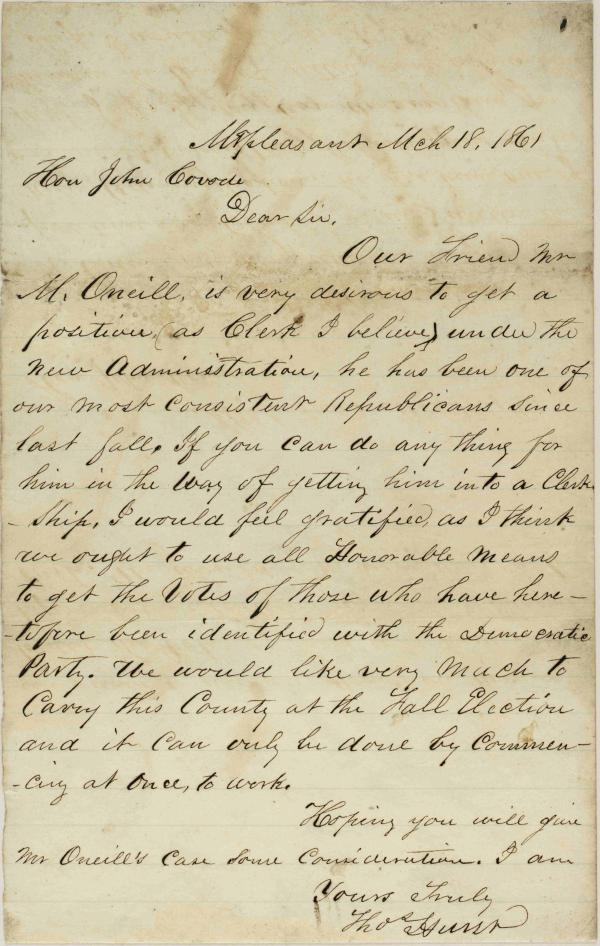 Mt pleasant Mch 18, 1861
Hon John Covode
Dear Sir,
Our Friend Mr
M. Oneill, is very desirous to get a
position, (as Clerk I believe) under the
New Administration, he has been one of
our most consistent Republicans since
last fall. If you can do any thing for
him in the way of getting him into a Clerk
-ship, I would feel gratified, as I think
we ought to use all Honorable means
to get the Votes of those who have here-
-tofore been identified with the Democratic
Party. We would like very much to
Carry this County at the Fall Election
and it can only be done by Commen-
-cing at once, to work.
Hoping you will give
Mr Oneill's case some consideration. I am
Yours Truly
Thos Hurst